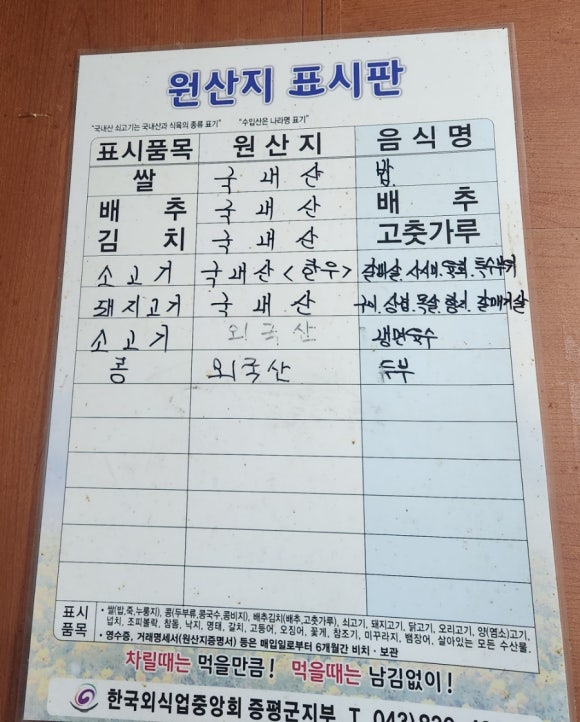 원산지 표시판
"국내산 쇠고기는 국내산과 식육의 종류 표기" "수입산은 나라명 표기"
표시품목 원산지 음식명
쌀 국내산 밥
배추 국내산 배추
김치 국내산 고춧가루
소고기 국내산<한우> 갈비살. 사시미. 육회. 특수부위
돼지고기 국내산 구이. 삼겹. 목살. 갈매기살
소고기 외국산 냉면육수
콩 외국산 두부
표시 품목
• 쌀(밥,죽,누룽지), 콩(두부류,콩국수,콩비지), 배추김치(배추,고춧가루), 쇠고기, 돼지고기, 닭고기, 오리고기, 양(염소)고기,
넙치, 조피볼락, 참돔, 낙지, 명태, 갈치, 고등어, 오징어, 꽃게, 참조기, 미꾸라지, 뱀장어, 살아있는 모든 수산물.
• 영수증, 거래명세서(원산지증명서) 등은 매입일로부터 6개월간 비치 · 보관
차릴때는 먹을만큼! 먹을때는 남김없이!
한국외식업중앙회 증평군지부 T. 043)